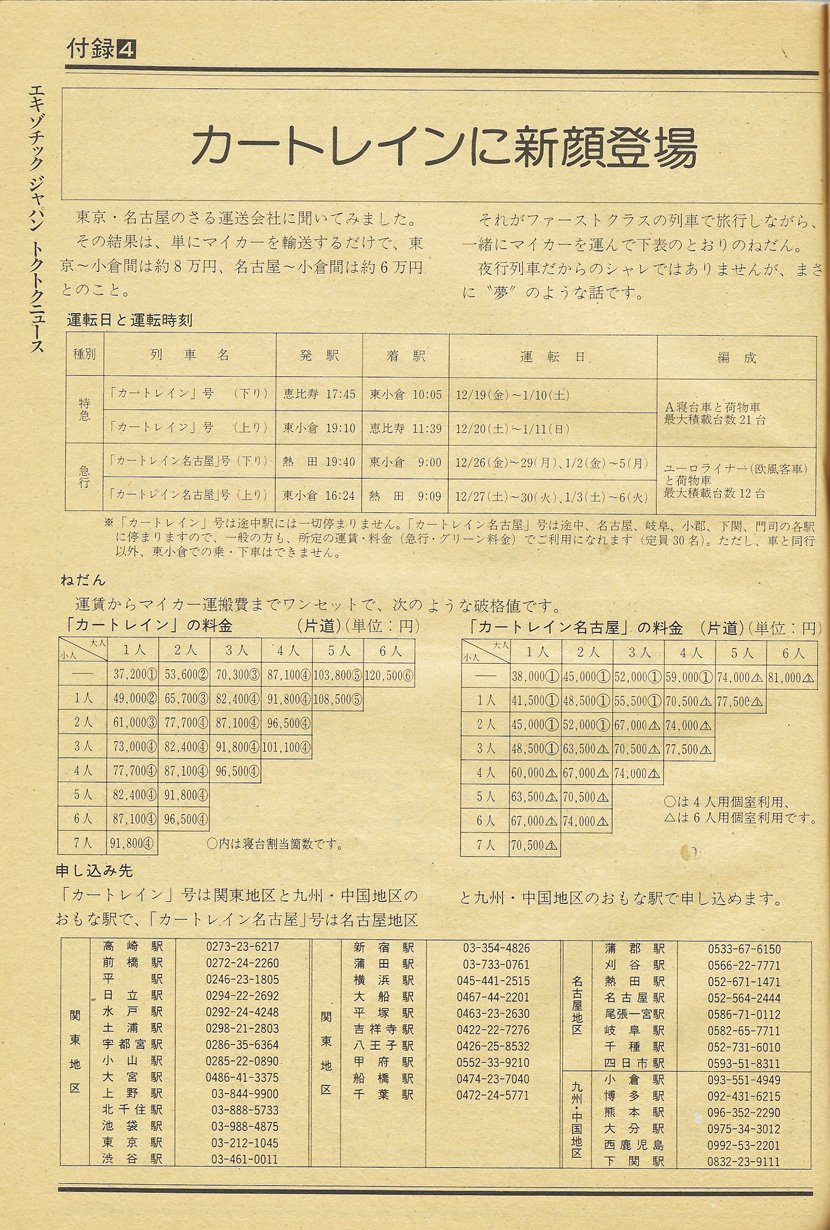 付録4
エキゾチック ジャパン トクトクニュース
カートレインに新顔登場
東京・名古屋のさる運送会社に聞いてみました。
その結果は、単にマイカーを輸送するだけで、東
京～小倉間は約8万円、名古屋～小倉間は約6万円
とのこと。
それがファーストクラスの列車で旅行しながら、
一緒にマイカーを運んで下表のとおりのねだん。
夜行列車だからのシャレではありませんが、まさ
に〝夢〟のような話です。
運転日と運転時刻
種別 列車名 発駅 着駅 運転日 編成
特急 「カートレイン」号 (下り) 恵比寿 17:45 東小倉 10:05 12/19(金)～1/10(土) A寝台車と荷物車
最大積載台数21台
「カートレイン」号 (上り) 東小倉 19:10 恵比寿 11:39 12/20(土)～1/11(日)
急行 「カートレイン名古屋」号 (下り) 熱田 19:40 東小倉 9:00 12/26(金)～29(月)、1/2(金)～5(月) ユーロライナー(欧風客車)
と荷物車
最大積載台数12台
「カートレイン名古屋」号 (上り) 東小倉 16:24 熱田 9:09 12/27(土)～30(火)、1/3(土)～6(火)
※「カートレイン」号は途中駅には一切停まりません。「カートレイン名古屋」号は途中、名古屋、岐阜、小郡、下関、門司の各駅
に停まりますので、一般の方も、所定の運賃・料金(急行・グリーン料金)でご利用になれます(定員30名)。ただし、車と同行
以外、東小倉での乗・下車はできません。
ねだん
運賃からマイカー運搬費までワンセットで、次のような破格値です。
「カートレイン」の料金 (片道)(単位：円)
小人 大人 1人 2人 3人 4人 5人 6人
— 37,200① 53,600② 70,300③ 87,100④ 103,800⑤ 120,500⑥
1人 49,000② 65,700③ 82,400④ 91,800④ 108,500⑤
2人 61,000③ 77,700④ 87,100④ 96,500④
3人 73,000④ 82,400④ 91,800④ 101,100④
4人 77,700④ 87,100④ 96,500④
5人 82,400④ 91,800④
6人 87,100④ 96,500④
7人 91,800④
○内は寝台割当箇数です。
「カートレイン名古屋」の料金 (片道)(単位：円)
小人 大人 1人 2人 3人 4人 5人 6人
— 38,000① 45,000① 52,000① 59,000① 74,000⚠ 81,000⚠
1人 41,500① 48,500① 55,500① 70,500⚠ 77,500⚠
2人 45,000① 52,000① 67,000⚠ 74,000⚠
3人 48,500① 63,500⚠ 70,500⚠ 77,500⚠
4人 60,000⚠ 67,000⚠ 74,000⚠
5人 63,500⚠ 70,500⚠
6人 67,000⚠ 74,000⚠
7人 70,500⚠
○は4人用個室利用、
△は6人用個室利用です。
申し込み先
「カートレイン」号は関東地区と九州・中国地区の
おもな駅で、「カートレイン名古屋」号は名古屋地区
と九州・中国地区のおもな駅で申し込めます。
関東地区
高崎駅 0273-23-6217
前橋駅 0272-24-2260
平駅 0246-23-1805
日立駅 0294-22-2692
水戸駅 0292-24-4248
土浦駅 0298-21-2803
宇都宮駅 0286-35-6364
小山駅 0285-22-0890
大宮駅 0486-41-3375
上野駅 03-844-9900
北千住駅 03-888-5733
池袋駅 03-988-4875
東京駅 03-212-1045
渋谷駅 03-461-0011
関東地区
新宿駅 03-354-4826
蒲田駅 03-733-0761
横浜駅 045-441-2515
大船駅 0467-44-2201
平塚駅 0463-23-2630
吉祥寺駅 0422-22-7276
八王子駅 0426-25-8532
甲府駅 0552-33-9210
船橋駅 0474-23-7040
千葉駅 0472-24-5771
名古屋地区
蒲郡駅 0533-67-6150
刈谷駅 0566-22-7771
熱田駅 052-671-1471
名古屋駅 052-564-2444
尾張一宮駅 0586-71-0112
岐阜駅 0582-65-7711
千種駅 052-731-6010
四日市駅 0593-51-8311
九州・中国地区
小倉駅 093-551-4949
博多駅 092-431-6215
熊本駅 096-352-2290
大分駅 0975-34-3012
西鹿児島 0992-53-2201
下関駅 0832-23-9111